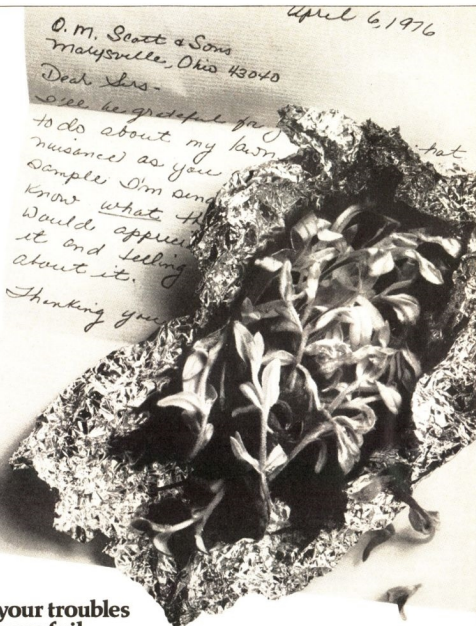 April 6, 1976
O. M. Scott & Sons
Marysville, Ohio 43040
Dear Sirs-
I'll be grateful for
to do about my lawn hat
nuisance) as you
sample I'm send
know what th
would apprecia
it and telling
about it.
Thanking you
your troubles